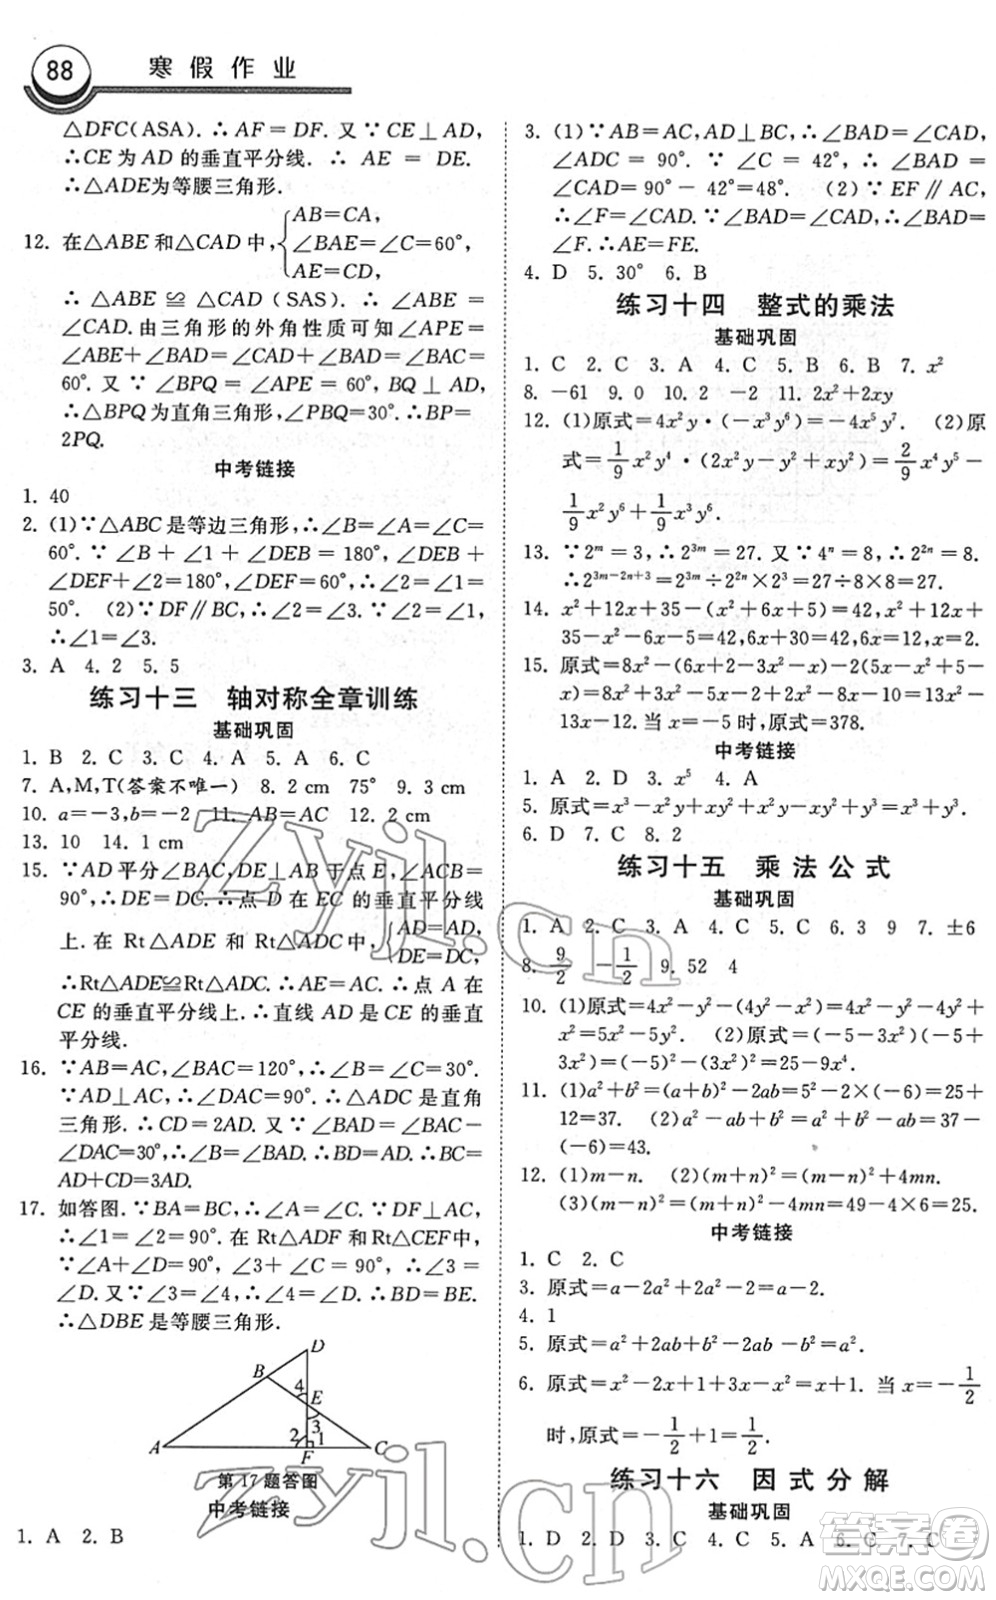 88 寒假作业
△DFC(ASA). ∴AF=DF. 又∵CE⊥AD,
∴CE为AD的垂直平分线. ∴AE=DE.
∴△ADE为等腰三角形.
12. 在△ABE和△CAD中,{AB=CA,
∠BAE=∠C=60°,
AE=CD.
∴△ABE≌△CAD(SAS). ∴∠ABE=
∠CAD.由三角形的外角性质可知∠APE=
∠ABE+∠BAD=∠CAD+∠BAD=∠BAC=
60°. 又∵∠BPQ=∠APE=60°,BQ⊥AD,
∴△BPQ为直角三角形,∠PBQ=30°. ∴BP=
2PQ.
中考链接
1. 40
2. (1)∵△ABC是等边三角形,∴∠B=∠A=∠C=
60°. ∵∠B+∠1+∠DEB=180°,∠DEB+
∠DEF+∠2=180°,∠DEF=60°,∴∠2=∠1=
50°. (2)∵DF∥BC,∴∠2=∠3. ∵∠2=∠1,
∴∠1=∠3.
3. A 4. 2 5. 5
练习十三 轴对称全章训练
基础巩固
1. B 2. C 3. C 4. A 5. A 6. C
7. A,M,T(答案不唯一) 8. 2 cm 75° 9. 3 cm
10. a=-3,b=-2 11. AB=AC 12. 2 cm
13. 10 14. 1 cm
15. ∵AD平分∠BAC,DE⊥AB于点E,∠C=
90°. ∴DE=DC. ∴点D在EC的垂直平分线
上. 在Rt△ADE和Rt△ADC中,{AD=AD,
DE=DC.
∴Rt△ADE≌Rt△ADC. ∴AE=AC. ∴点A在
CE的垂直平分线上. ∴直线AD是CE的垂直
平分线.
16. ∵AB=AC,∠BAC=120°,∴∠B=∠C=30°.
∵AD⊥AC,∴∠DAC=90°. ∴△ADC是直角
三角形. ∴CD=2AD. 又∵∠BAD=∠BAC-
∠DAC=30°,∴∠B=∠BAD. ∴BD=AD. ∴BC=
AD+CD=3AD.
17. 如答图. ∵BA=BC,∴∠A=∠C. ∵DF⊥AC,
∴∠1=∠2=90°. 在Rt△ADF和Rt△CEF中,
∵∠A+∠D=90°,∠3+∠C=90°,∴∠3=
∠D. 又∵∠3=∠4,∴∠4=∠D. ∴BD=BE.
∴△DBE是等腰三角形.
D
B
4
E
3
2
1
A
F
C
第17题答图
中考链接
1. A 2. B
3. (1)∵AB=AC,AD⊥BC,∴∠BAD=∠CAD,
∠ADC=90°. ∵∠C=42°,∴∠BAD=
∠CAD=90°-42°=48°. (2)∵EF∥AC,
∴∠F=∠CAD. ∵∠BAD=∠CAD,∴∠BAD=
∠F. ∴AE=FE.
4. D 5. 30° 6. B
练习十四 整式的乘法
基础巩固
1. C 2. C 3. A 4. C 5. B 6. B 7. x²
8. -61 9. 0 10. 2 -2 11. 2x²+2xy
12. (1)原式=4x²y·(-x³y⁶)=-4x⁵y⁷. (2)原
式=1/9x²y⁴·(2x²y-y²+xy²)=2/9x⁴y⁵-
1/9x²y⁶+1/9x³y⁶.
13. ∵2ᵐ=3,∴2³ᵐ=27. 又∵4ⁿ=8,∴2²ⁿ=8.
∴2³ᵐ⁻²ⁿ⁺³=2³ᵐ÷2²ⁿ×2³=27÷8×8=27.
14. x²+12x+35-(x²+6x+5)=42,x²+12x+
35-x²-6x-5=42,6x+30=42,6x=12,x=2.
15. 原式=8x²-2x-12x+3-(2x²-x+10x-5)-
10=8x²-2x-12x+3-2x²+x-10x+5-10=6x²-
13x-10x-12. 当x=-5时,原式=378.
中考链接
1. A 2. D 3. x⁵ 4. A
5. 原式=x³-x²y+xy²+x²y-xy²+y³=x³+y³.
6. D 7. C 8. 2
练习十五 乘法公式
基础巩固
1. A 2. C 3. A 4. C 5. C 6. 3 9 7. ±6
8. 9/2 -1/2 9. 52 4
10. (1)原式=4x²-y²-(4y²-x²)=4x²-y²-4y²+
x²=5x²-5y². (2)原式=(-5-3x²)(-5+
3x²)=(-5)²-(3x²)²=25-9x⁴.
11. (1)a²+b²=(a+b)²-2ab=5²-2×(-6)=25+
12=37. (2)a²-ab+b²=a²+b²-ab=37-
(-6)=43.
12. (1)m-n. (2)(m+n)²=(m-n)²+4mn.
(3)(m-n)²=(m+n)²-4mn=49-4×6=25.
中考链接
1. C 2. C
3. 原式=a-2a²+2(a²-1)=a-2a²+2a²-2=a-2.
4. 1
5. 原式=a²+2ab+b²-2ab-b²=a².
6. 原式=x²-2x+1+3x-x²=x+1. 当x=-1/2
时,原式=-1/2+1=1/2.
练习十六 因式分解
基础巩固
1. D 2. D 3. C 4. C 5. A 6. C 7. C
zyjl.cn
zyjl.cn
答案圈
MXQE.COM